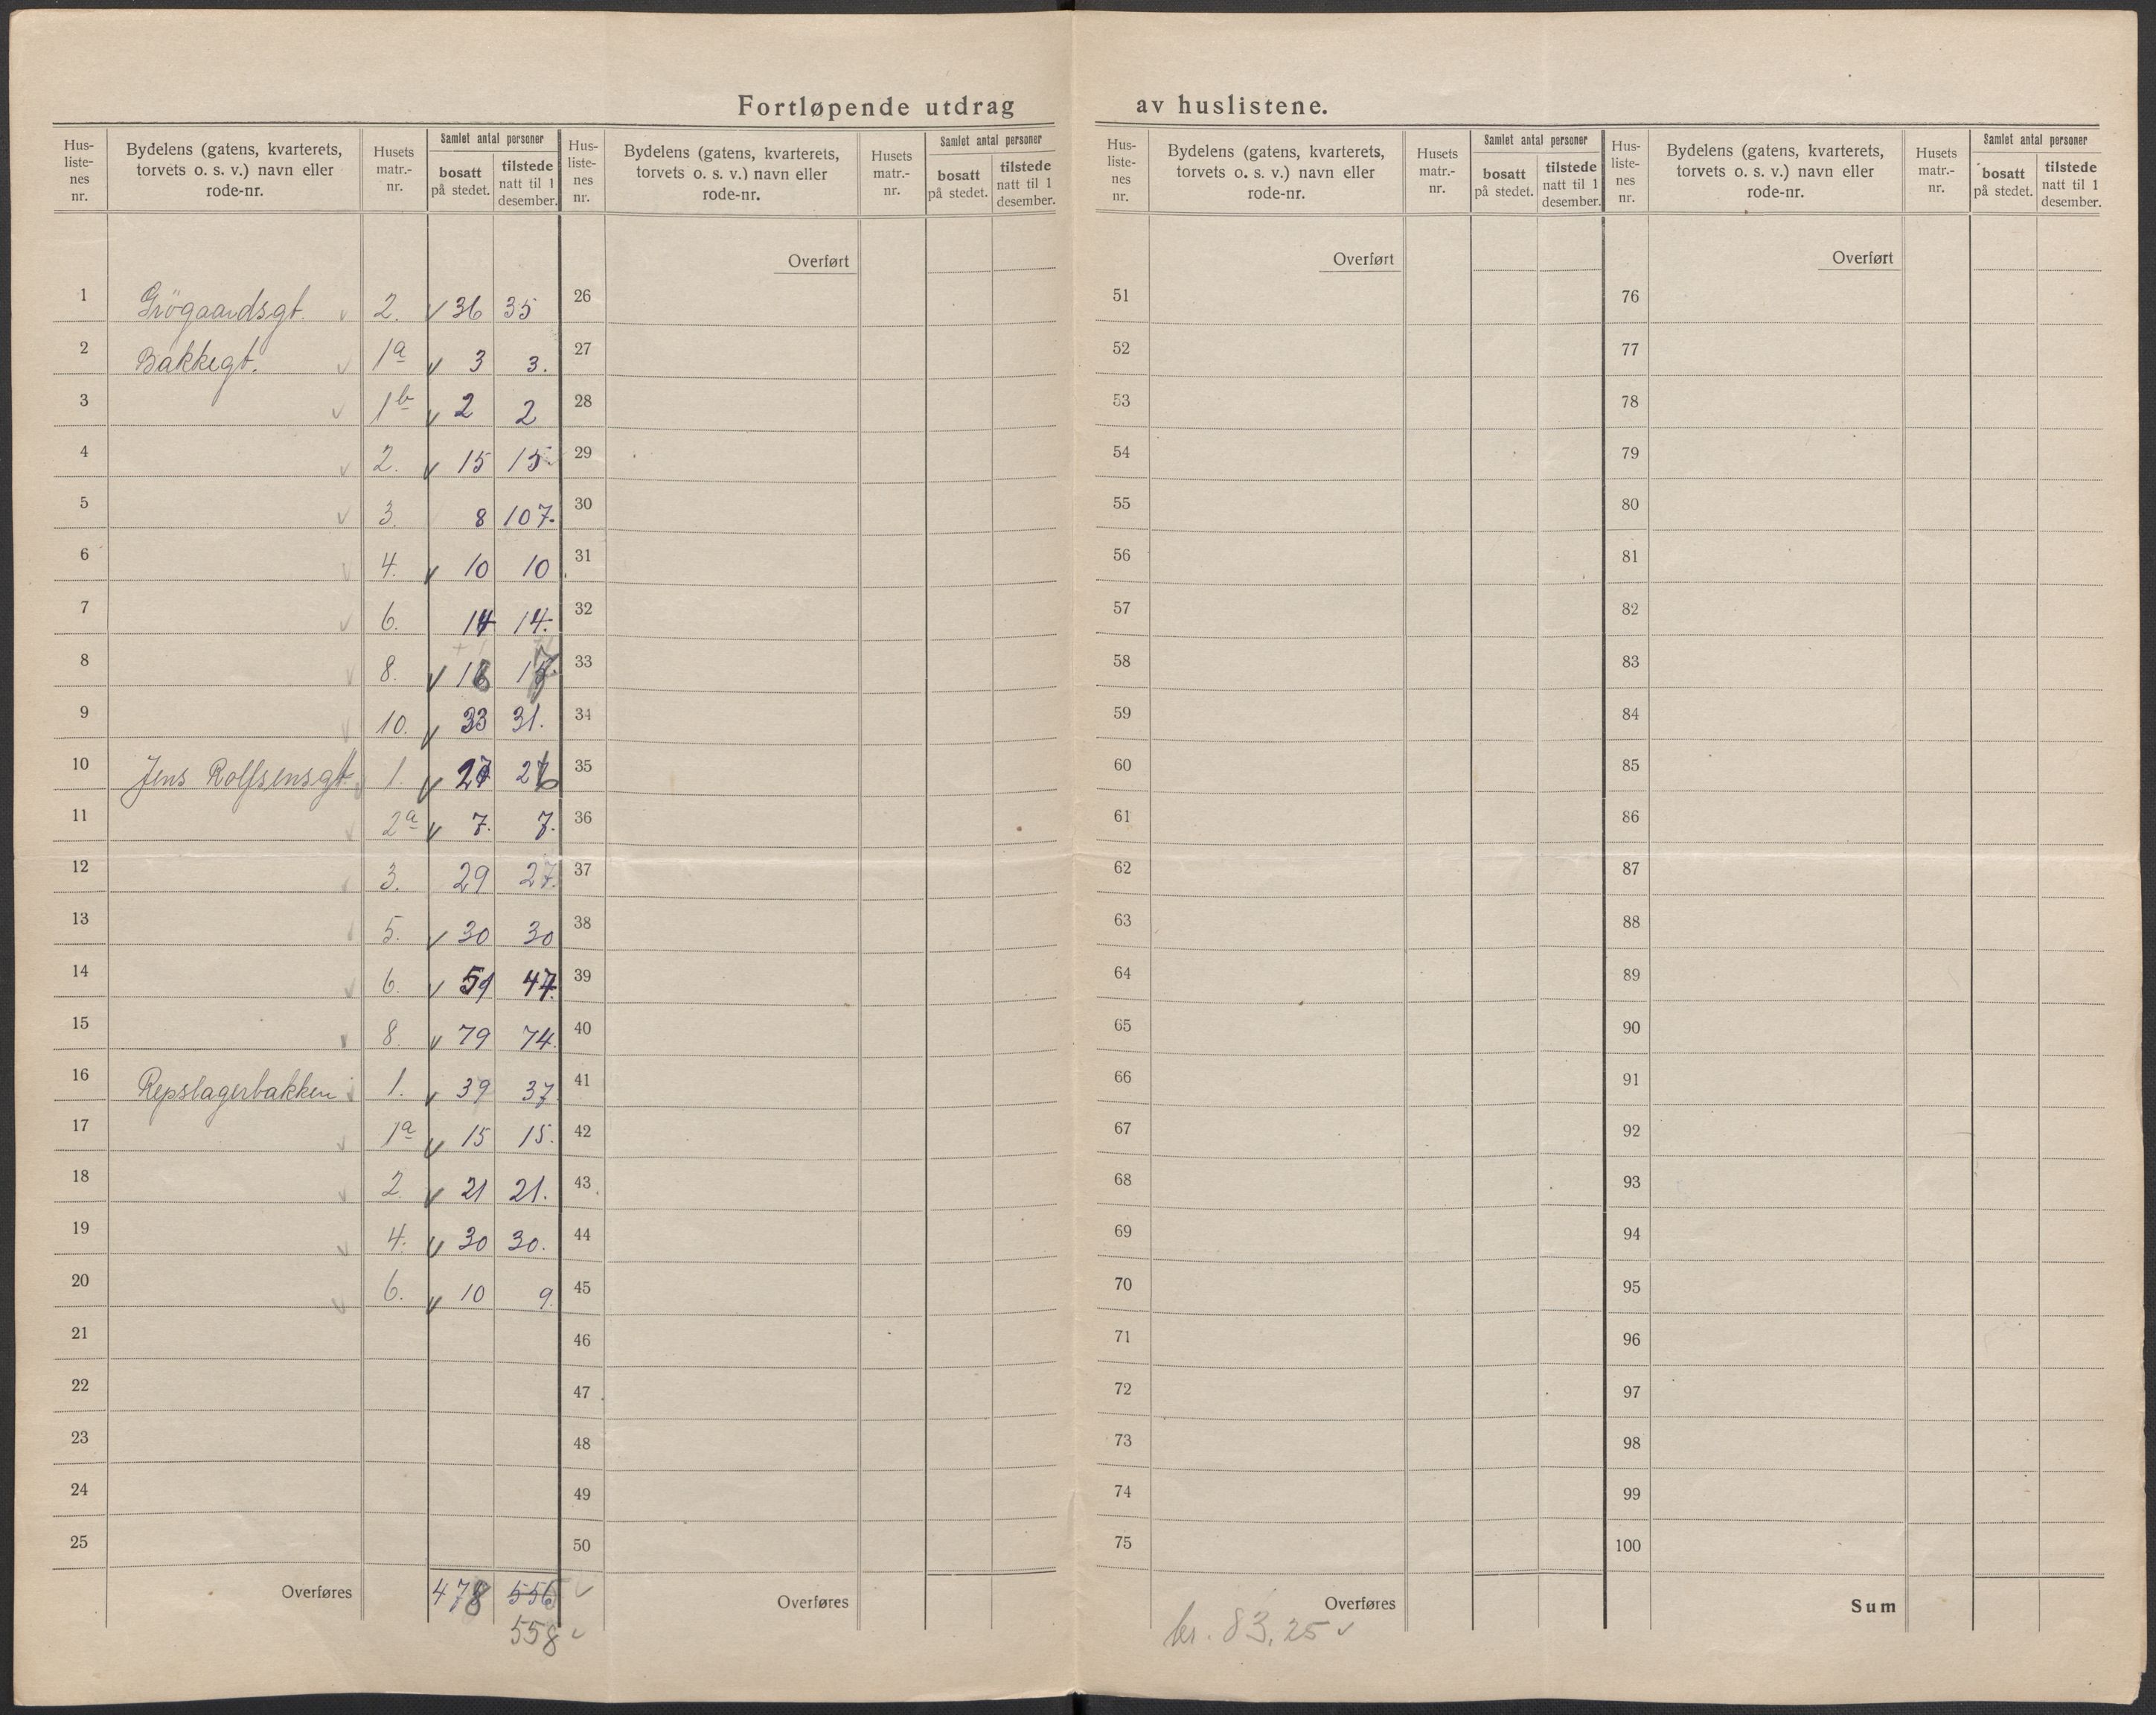 Fortløpende utdrag av huslistene.
Hus-listenes nr. | Bydelens (gatens, kvarterets, torvets o. s. v.) navn eller rode-nr. | Husets matr.-nr. | Samlet antal personer bosatt på stedet. | tilstede natt til 1 desember.
Hus-listenes nr. | Bydelens (gatens, kvarterets, torvets o. s. v.) navn eller rode-nr. | Husets matr.-nr. | Samlet antal personer bosatt på stedet. | tilstede natt til 1 desember.
Hus-listenes nr. | Bydelens (gatens, kvarterets, torvets o. s. v.) navn eller rode-nr. | Husets matr.-nr. | Samlet antal personer bosatt på stedet. | tilstede natt til 1 desember.
Hus-listenes nr. | Bydelens (gatens, kvarterets, torvets o. s. v.) navn eller rode-nr. | Husets matr.-nr. | Samlet antal personer bosatt på stedet. | tilstede natt til 1 desember.
Overført Overført Overført
1 Grögaardsgt. 2. 36 35 26 51 76
2 Bakkegt. 1a 3 3. 27 52 77
3 1b 2 2 28 53 78
4 2. 15 15 29 54 79
5 3. 8 107. 30 55 80
6 4. 10 10 31 56 81
7 6. 14 14. 32 57 82
8 8. 16 17 33 58 83
9 10. 33 31. 34 59 84
10 Jens Rolfsensgt. 1. 27 26 35 60 85
11 2a 7. 7. 36 61 86
12 3. 29 27. 37 62 87
13 5. 30 30 38 63 88
14 6. 51 47. 39 64 89
15 8. 79 74. 40 65 90
16 Repslagerbakken 1. 39 37 41 66 91
17 1a 15 15. 42 67 92
18 2. 21 21. 43 68 93
19 4. 30 30. 44 69 94
20 6. 10 9. 45 70 95
21 46 71 96
22 47 72 97
23 48 73 98
24 49 74 99
25 50 75 100
Overføres 478 556 Overføres Overføres Sum
558
kr. 83,25